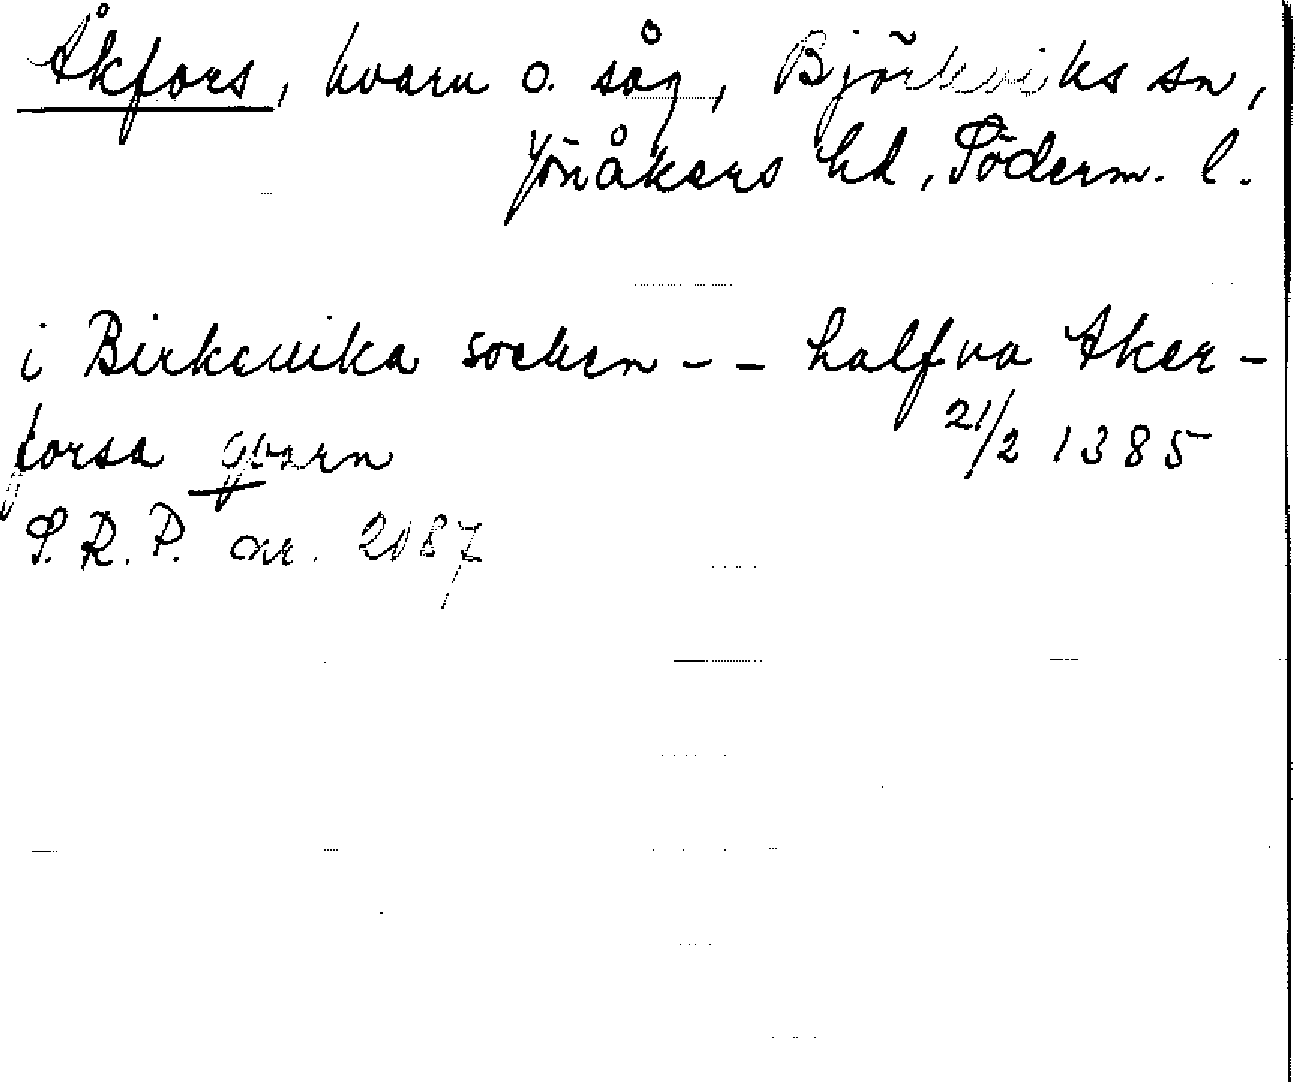 Åkfors, kvarn o. såg, Björkviks sn,
Jönåkers hd, Söderm. l.
i Birkeuika socken - - halfua Aker-
forsa qvarn 21/2 1385
S.R.P. nr. 2087